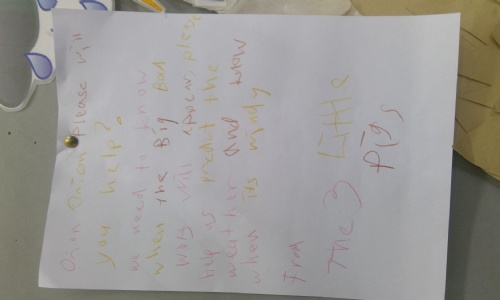 Orion Orion please will
you help?
we need to know
when the Big Bad
wolf will appear, please
help us predict the
weather and know
when its windy
from
The 3 Little
pigs